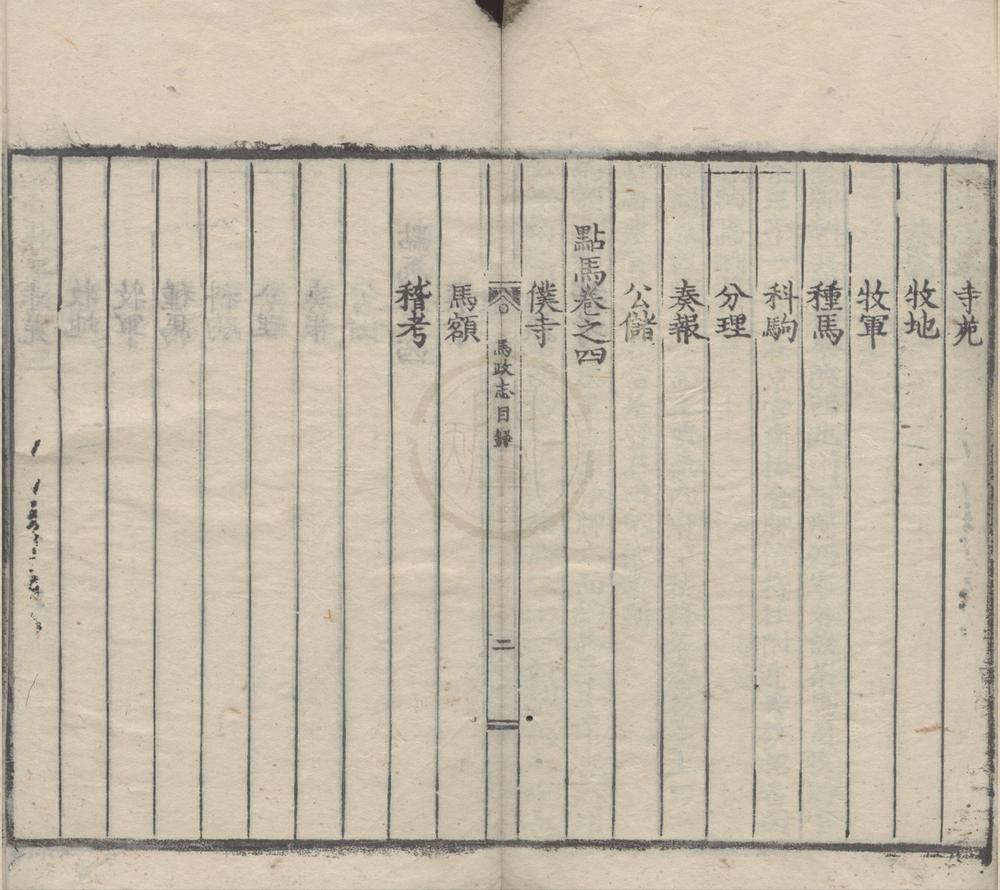 寺苑
牧地
牧軍
種馬
科駒
分理
奏報
公儲
點馬卷之四
僕寺
馬政志目録
二
馬額
稽考